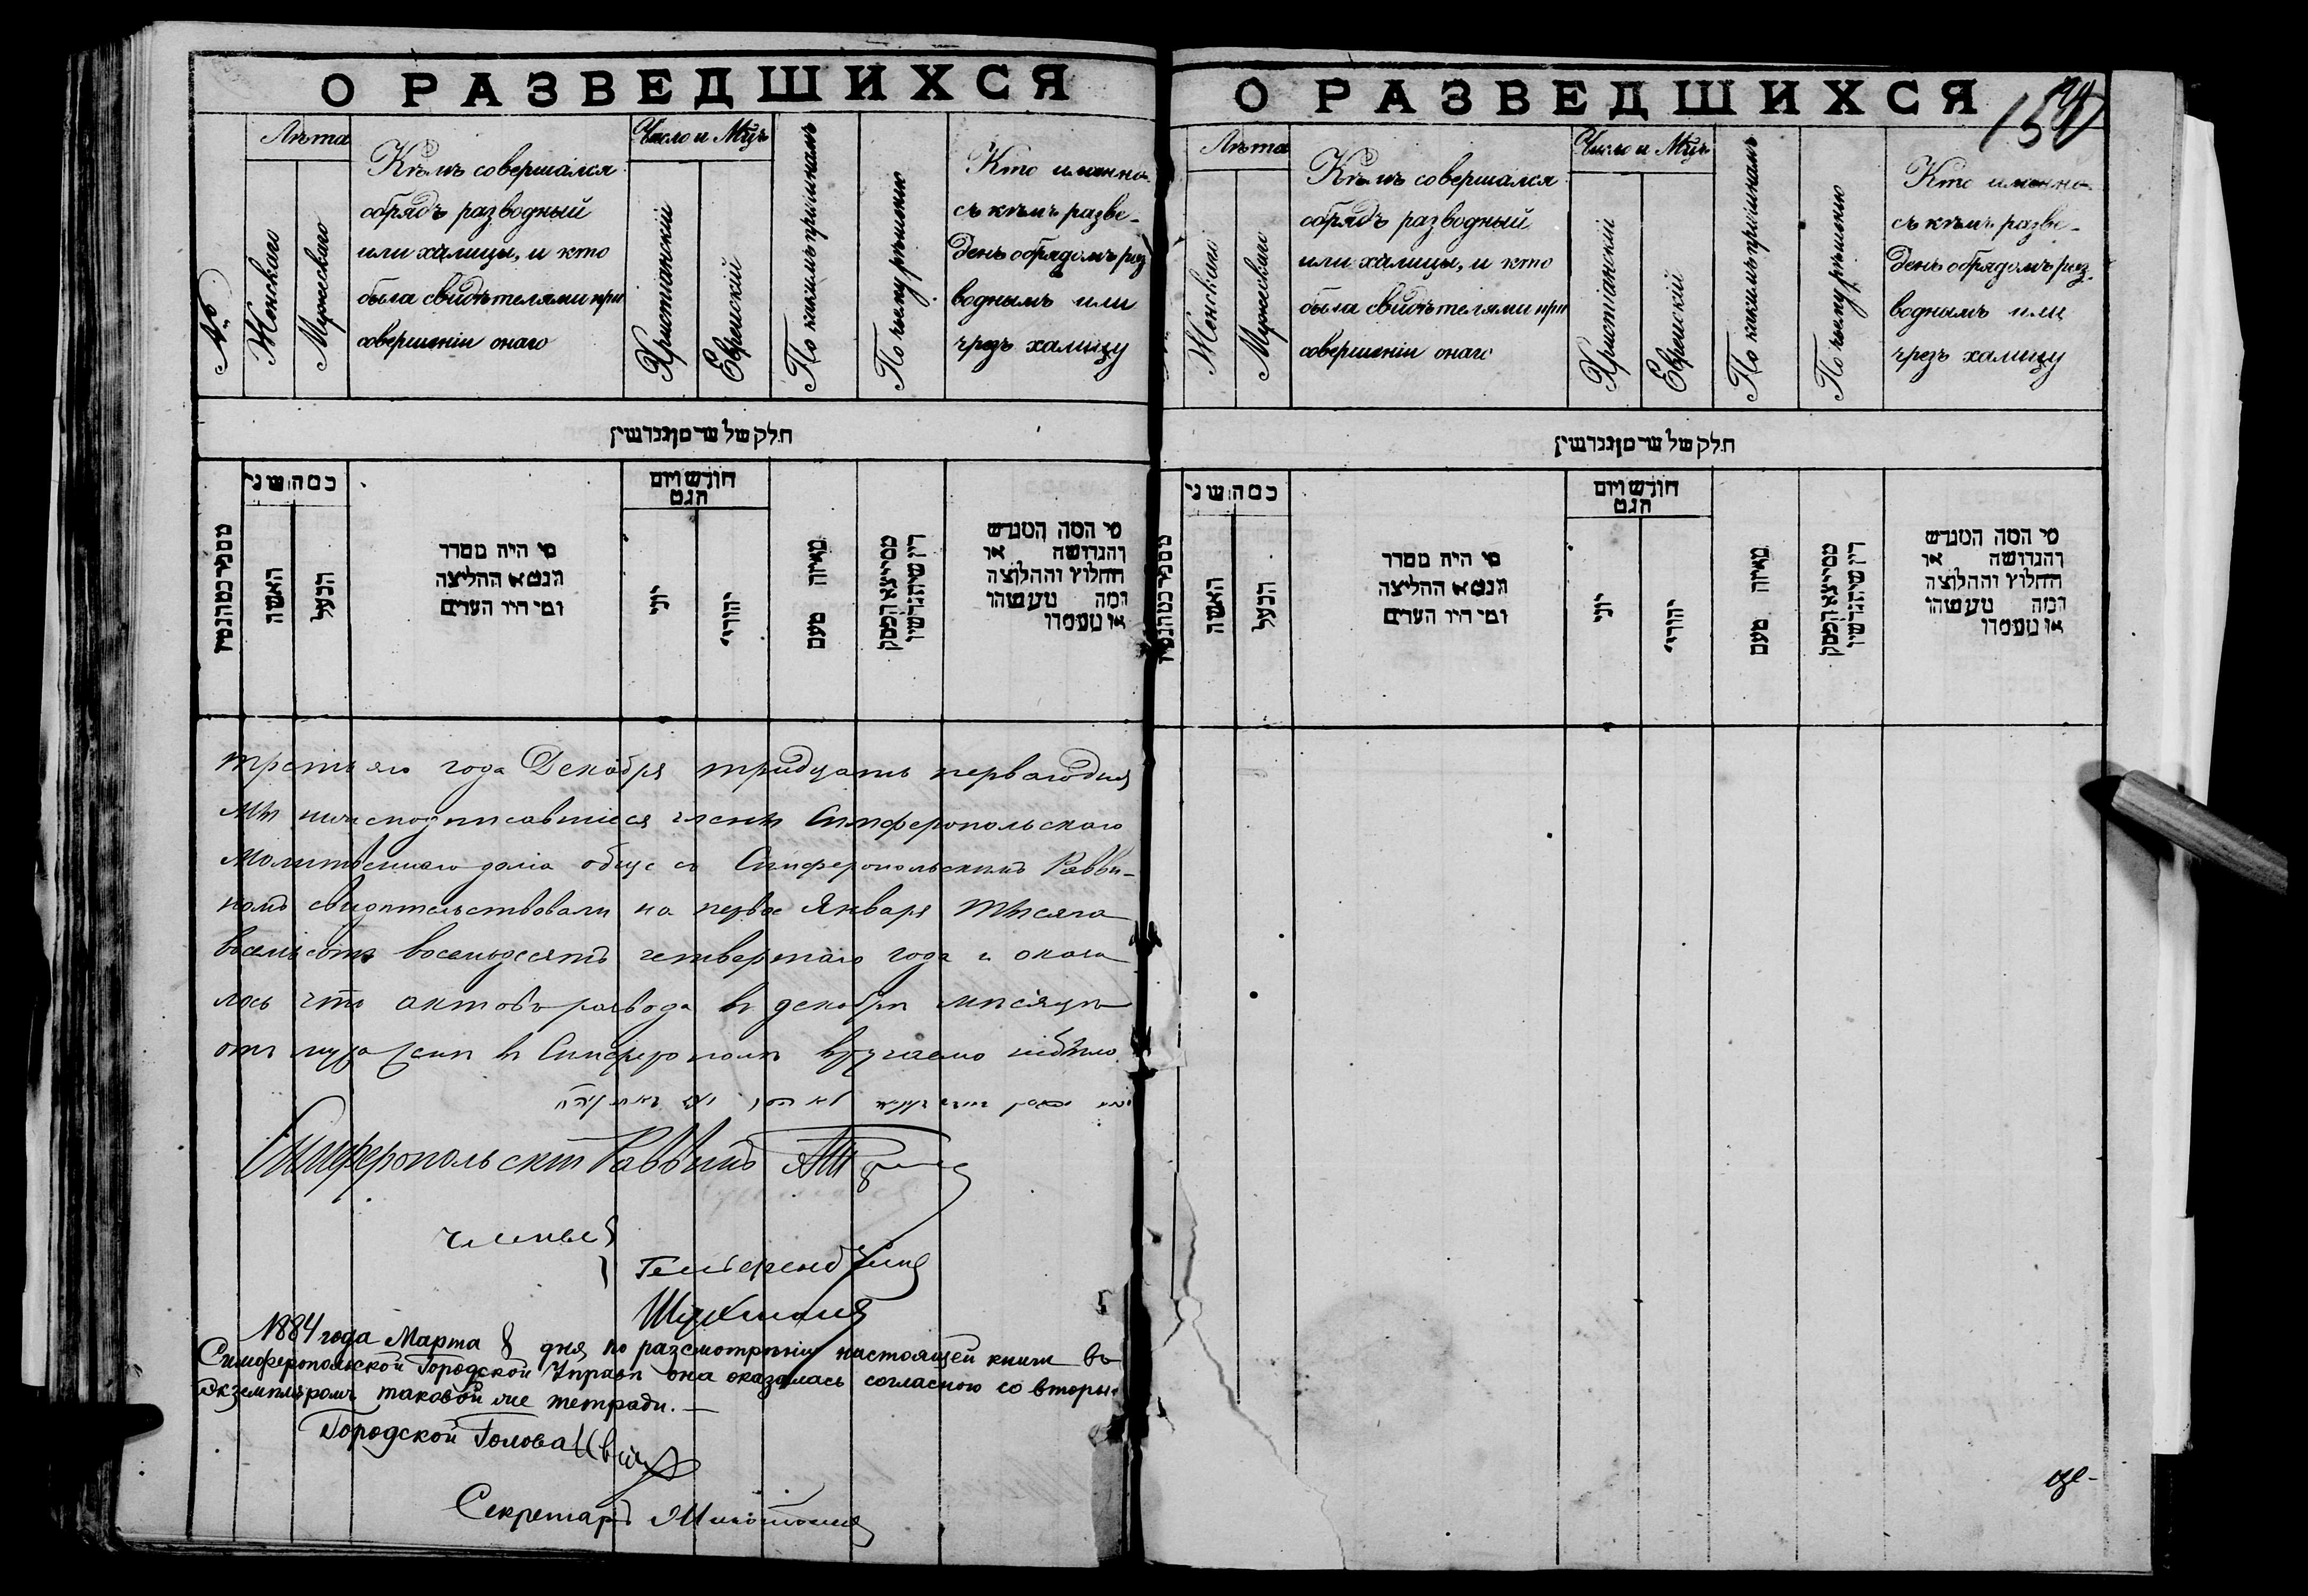 О РАЗВЕДШИХСЯ
№
Лѣта
Женскаго
Мужескаго
Кѣмъ совершался
обрядъ разводный
или халицы, и кто
была свидѣтелями при
совершеніи онаго
Число и Мѣцъ
Христіанскій
Еврейскій
По какимъ причинамъ
По чьему рѣшенію
Кто именно
съ кѣмъ разве-
денъ обрядомъ раз-
воднымъ или
чрезъ халицу
חלק של שרסןוגרושין
מספר כמה גטין
כמה שני
האשה
הבעל
מי היה מסדר
הגט או החליצה
ומי היו העדים
חודש ויום
הגט
יוני
יהודי
מאיזה טעם
ממי יצא הפסק
דין שיתגרשו
מי המה המגרש
והגרושה או
החלוץ והחלוצה
ומה נעשה
או נעמדו
третьяго года Декабря тридцать перваго дня
мы нижеподписавшіеся члены Симферопольскаго
Молитвеннаго дома обще съ Симферопольскимъ Равви-
номъ свидѣтельствовали на первое Января тысяча
восемьсотъ восемьдесятъ четвертаго года и оказа
лось что актовъ развода въ декабрѣ мѣсяцѣ
отъ мужа женѣ въ Симферополѣ вручаемо небыло
Симферопольскій Раввинъ
члены
1884 года Марта 8 дня, по разсмотрѣніи настоящей книги въ
Симферопольской Городской Управѣ она оказалась согласною со вторы
экземпляромъ таковой же тетради. —
Городской Голова
Секретарь
О РАЗВЕДШИХСЯ
Лѣта
Женскаго
Мужескаго
Кѣмъ совершался
обрядъ разводный
или халицы, и кто
была свидѣтелями при
совершеніи онаго
Число и Мѣцъ
Христіанскій
Еврейскій
По какимъ причинамъ
По чьему рѣшенію
Кто именно
съ кѣмъ разве-
денъ обрядомъ раз-
воднымъ или
чрезъ халицу
חלק של שרסןוגרושין
מספר כמה גטין
כמה שני
האשה
הבעל
מי היה מסדר
הגט או החליצה
ומי היו העדים
חודש ויום
הגט
יוני
יהודי
מאיזה טעם
ממי יצא הפסק
דין שיתגרשו
מי המה המגרש
והגרושה או
החלוץ והחלוצה
ומה נעשה
או נעמדו